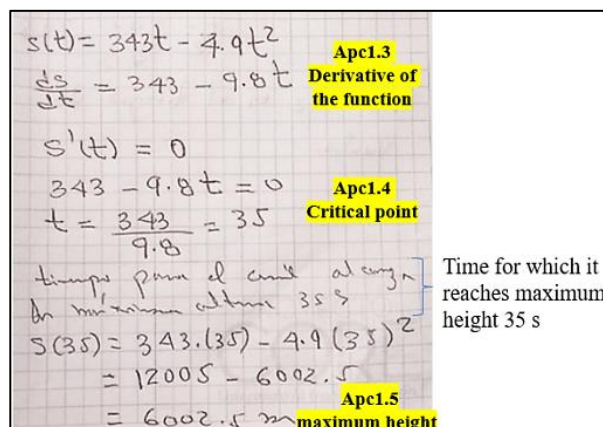 s(t) = 343t - 4.9t²
ds/dt = 343 - 9.8t
Apc1.3
Derivative of
the function
s'(t) = 0
343 - 9.8t = 0
t = 343/9.8 = 35
Apc1.4
Critical point
tiempo para el cual alcanza
la máxima altura 35 s
Time for which it
reaches maximum
height 35 s
s(35) = 343.(35) - 4.9(35)²
= 12005 - 6002.5
= 6002.5 m
Apc1.5
maximum height